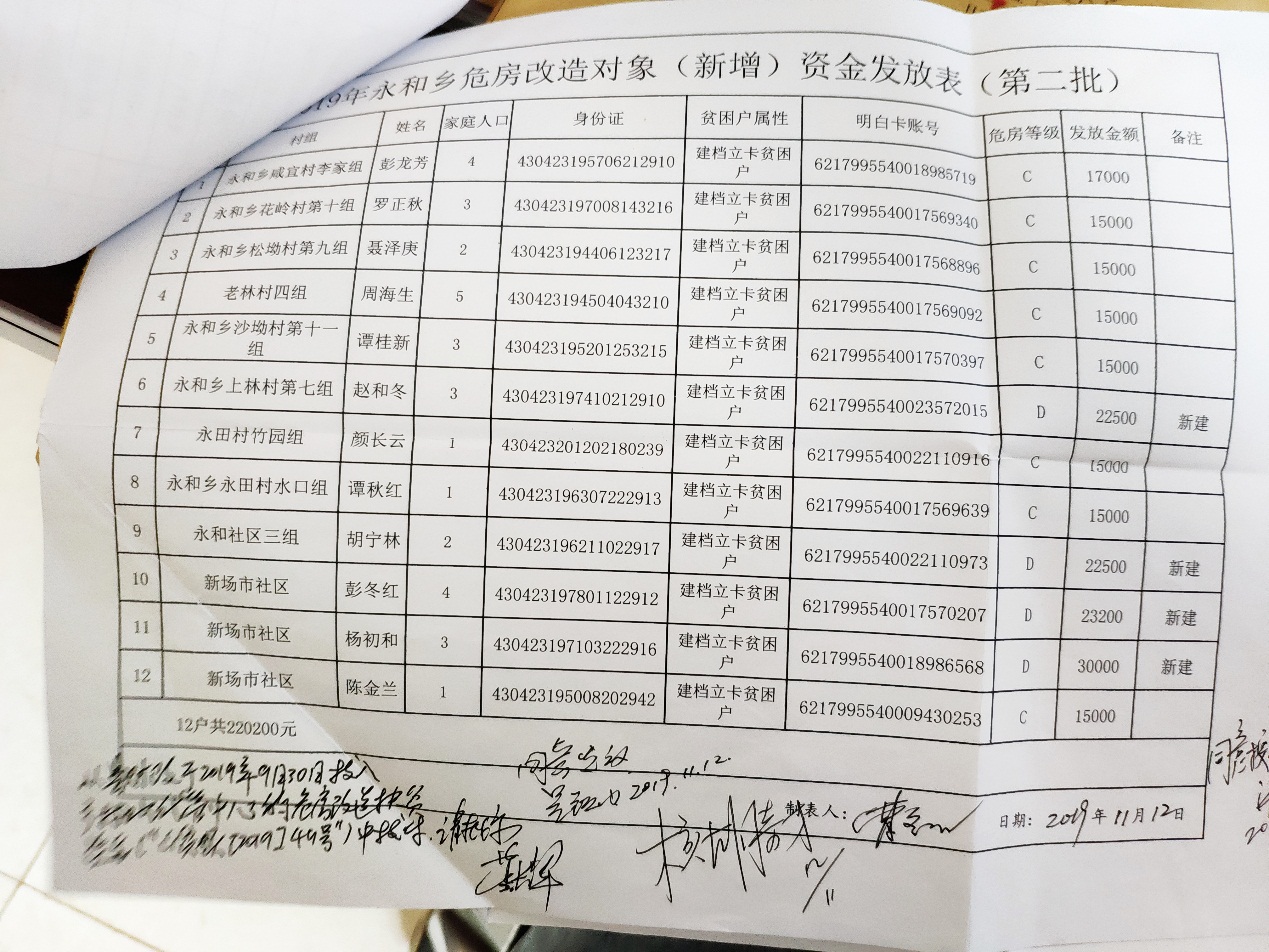 19年永和乡危房改造对象（新增）资金发放表（第二批）
村组 姓名 家庭人口 身份证 贫困户属性 明白卡账号 危房等级 发放金额 备注
1 永和乡咸宜村李家组 彭龙芳 4 430423195706212910 建档立卡贫困户 6217995540018985719 C 17000
2 永和乡花岭村第十组 罗正秋 3 430423197008143216 建档立卡贫困户 6217995540017569340 C 15000
3 永和乡松坳村第九组 聂泽庚 2 430423194406123217 建档立卡贫困户 6217995540017568896 C 15000
4 老林村四组 周海生 5 430423194504043210 建档立卡贫困户 6217995540017569092 C 15000
5 永和乡沙坳村第十一组 谭桂新 3 430423195201253215 建档立卡贫困户 6217995540017570397 C 15000
6 永和乡上林村第七组 赵和冬 3 430423197410212910 建档立卡贫困户 6217995540023572015 D 22500 新建
7 永田村竹园组 颜长云 1 430423201202180239 建档立卡贫困户 6217995540022110916 C 15000
8 永和乡永田村水口组 谭秋红 1 430423196307222913 建档立卡贫困户 6217995540017569639 C 15000
9 永和社区三组 胡宁林 2 430423196211022917 建档立卡贫困户 6217995540022110973 D 22500 新建
10 新场市社区 彭冬红 4 430423197801122912 建档立卡贫困户 6217995540017570207 D 23200 新建
11 新场市社区 杨初和 3 430423197103222916 建档立卡贫困户 6217995540018986568 D 30000 新建
12 新场市社区 陈金兰 1 430423195008202942 建档立卡贫困户 6217995540009430253 C 15000
12户共220200元
于2019年9月30日拨入
危房改造扶贫
[2019]49号")中
2019.11.12.
制表人： 日期：2019年11月12日
12/11